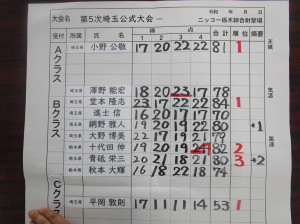 大会名 第5次埼玉公式大会 ニッコー栃木綜合射撃場
令和 年 月 日
受付 所属 氏名 得点 合計 順位 摘要
1 2 3 4
Aクラス
埼玉県 小野 公敬 17 20 22 22 81 1
天候
Bクラス
埼玉県 尾崎 能宏 18 20 23 17 78
埼玉県 堂本 隆志 23 17 22 22 84 1
埼玉県 進士 信 16 20 17 20
埼玉県 網野 雅人 19 20 19 22 80 +1
埼玉県 大野 博美 22 17 21 19 79
埼玉県 十代田 伸 19 20 19 24 82 2
埼玉県 青砥 栄三 20 21 18 21 80 3 +2
埼玉県 秋本 大輝 16 18 22 18 74
気温
風速
Cクラス
埼玉県 平岡 敦則 17 11 11 14 53 1